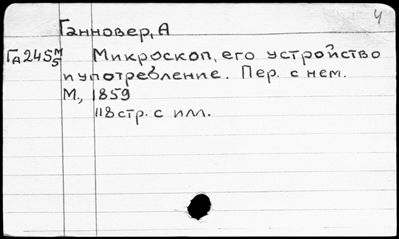 4
Ганновер, А
Га 245 М/5 Микроскоп, его устройство
и употребление. Пер. с нем.
М., 1859
118 стр. с илл.